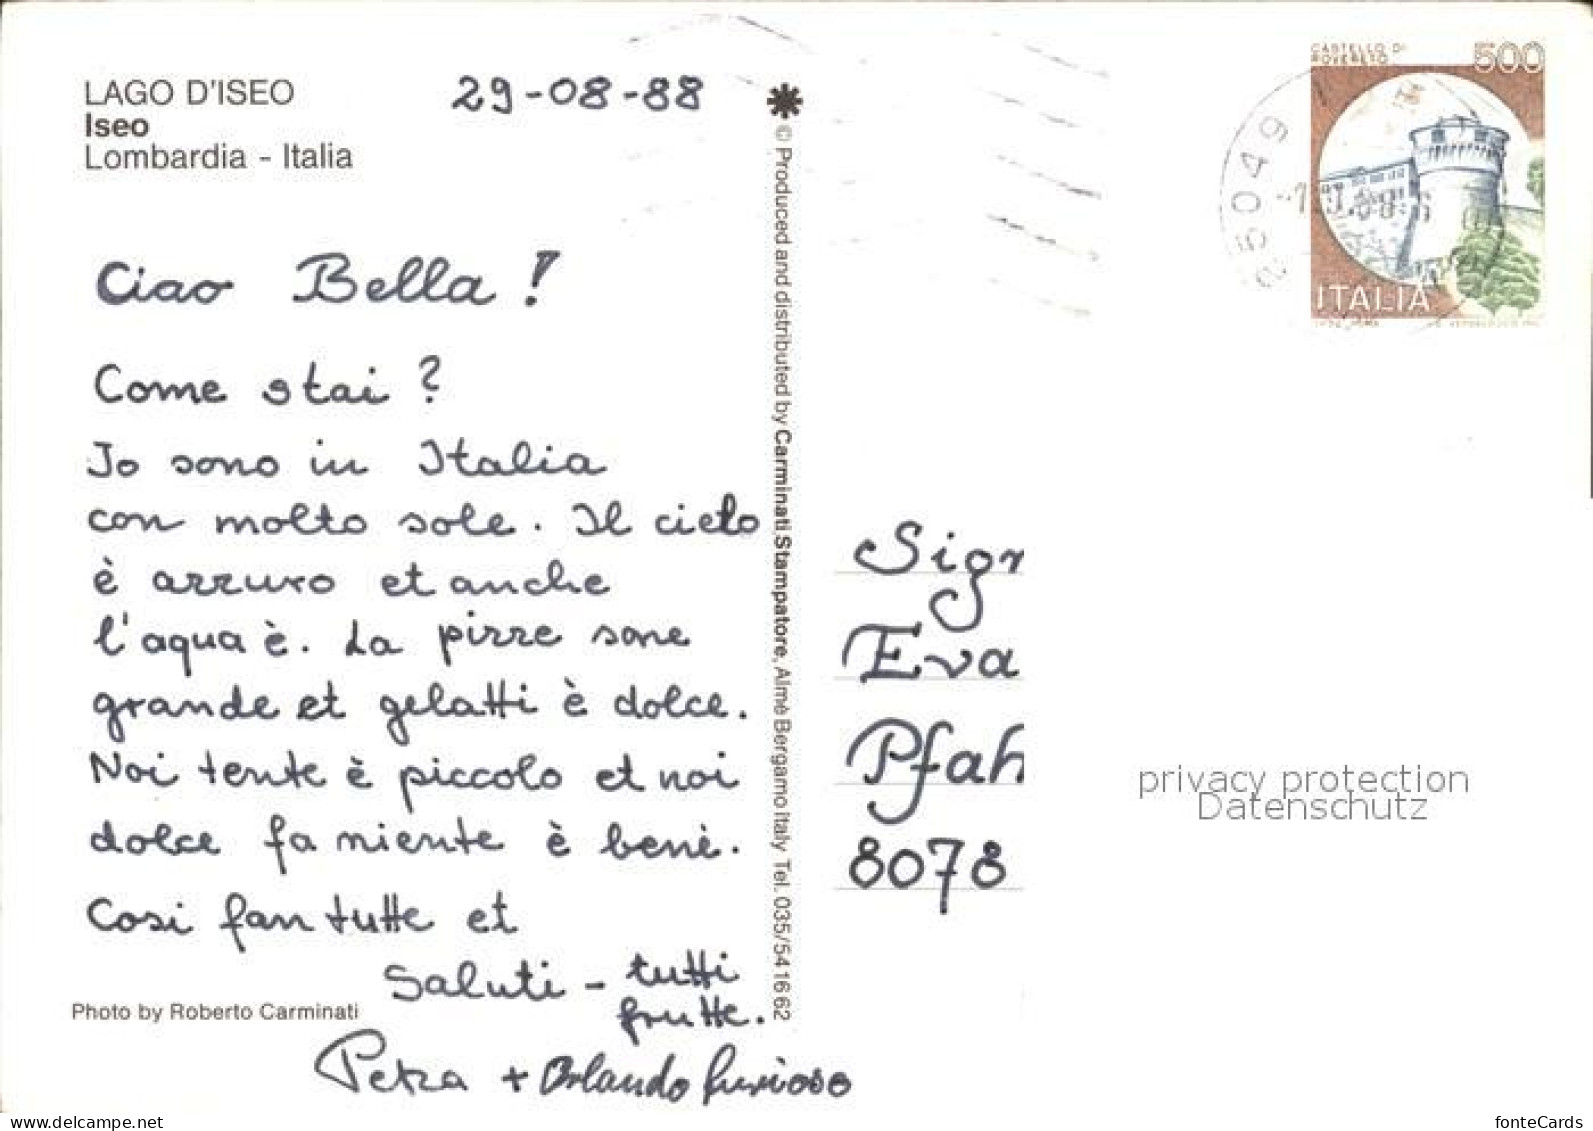 LAGO D'ISEO
Iseo
Lombardia - Italia
29-08-88
Ciao Bella !
Come stai ?
Jo sono in Italia
con molto sole. Il cielo
è azzuro et anche
l'aqua è. La pizze sone
grande et gelatti è dolce.
Noi tente è piccolo et noi
dolce fa niente è benè.
Cosi fan tutte et
Saluti - tutti
frutte.
Petra + Orlando furioso
Photo by Roberto Carminati
© Produced and distributed by Carminati Stampatore, Almè Bergamo Italy Tel. 035/54 16 62
CASTELLO DI
ROVERETO
500
ITALIA
25049
Sign
Eva
Pfah
8078
privacy protection
Datenschutz
www.delcampe.net
fonteCards